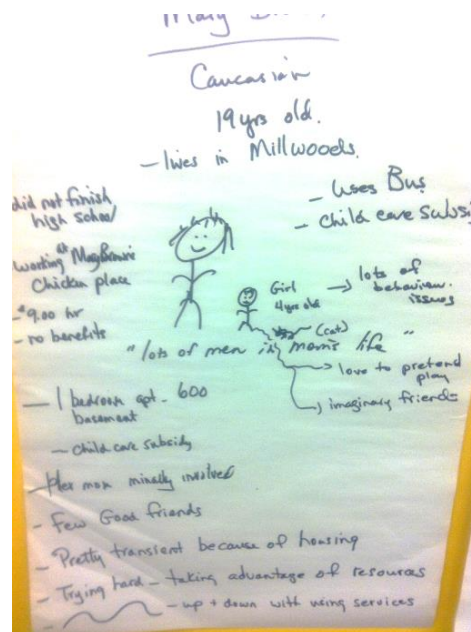 Mary
Caucasian
19 yrs old.
- lives in Millwoods.
did not finish
high school
- Uses Bus
- Child care subs
working at Mary Brown's
Chicken place
- $9.00 hr
- no benefits
Girl
4 yrs old
lots of
behaviour
issues
(cat)
"lots of men in mom's life"
love to pretend
play
imaginary friends
- 1 bedroom apt - 600
basement
- child care subsidy
- Her mom minally involved
- Few Good friends
- Pretty transient because of housing
- Trying hard - taking advantage of resources
- up + down with using services